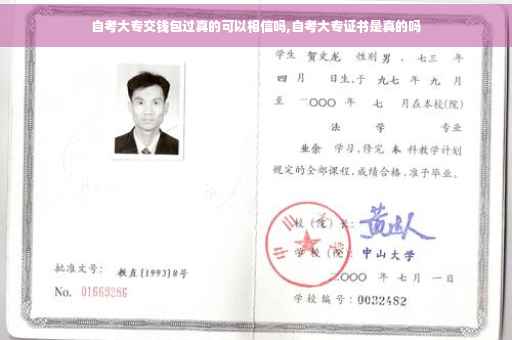 自考大专交钱包过真的可以相信吗,自考大专证书是真的吗
学生 贺文龙 性别 男 、七三 年
四 月 日生,于 九七 年 九 月
至 二〇〇〇 年 七 月在本校(院)
法 学 专业
业余 学习,修完 本 科教学计划
规定的全部课程,成绩合格,准予毕业。
校 (院) 长:
学 校 (院): 中山大学
二〇〇〇 年 七 月 一 日
学校编号: 0032482
批准文号: 教直[1993]8号
No. 01663286